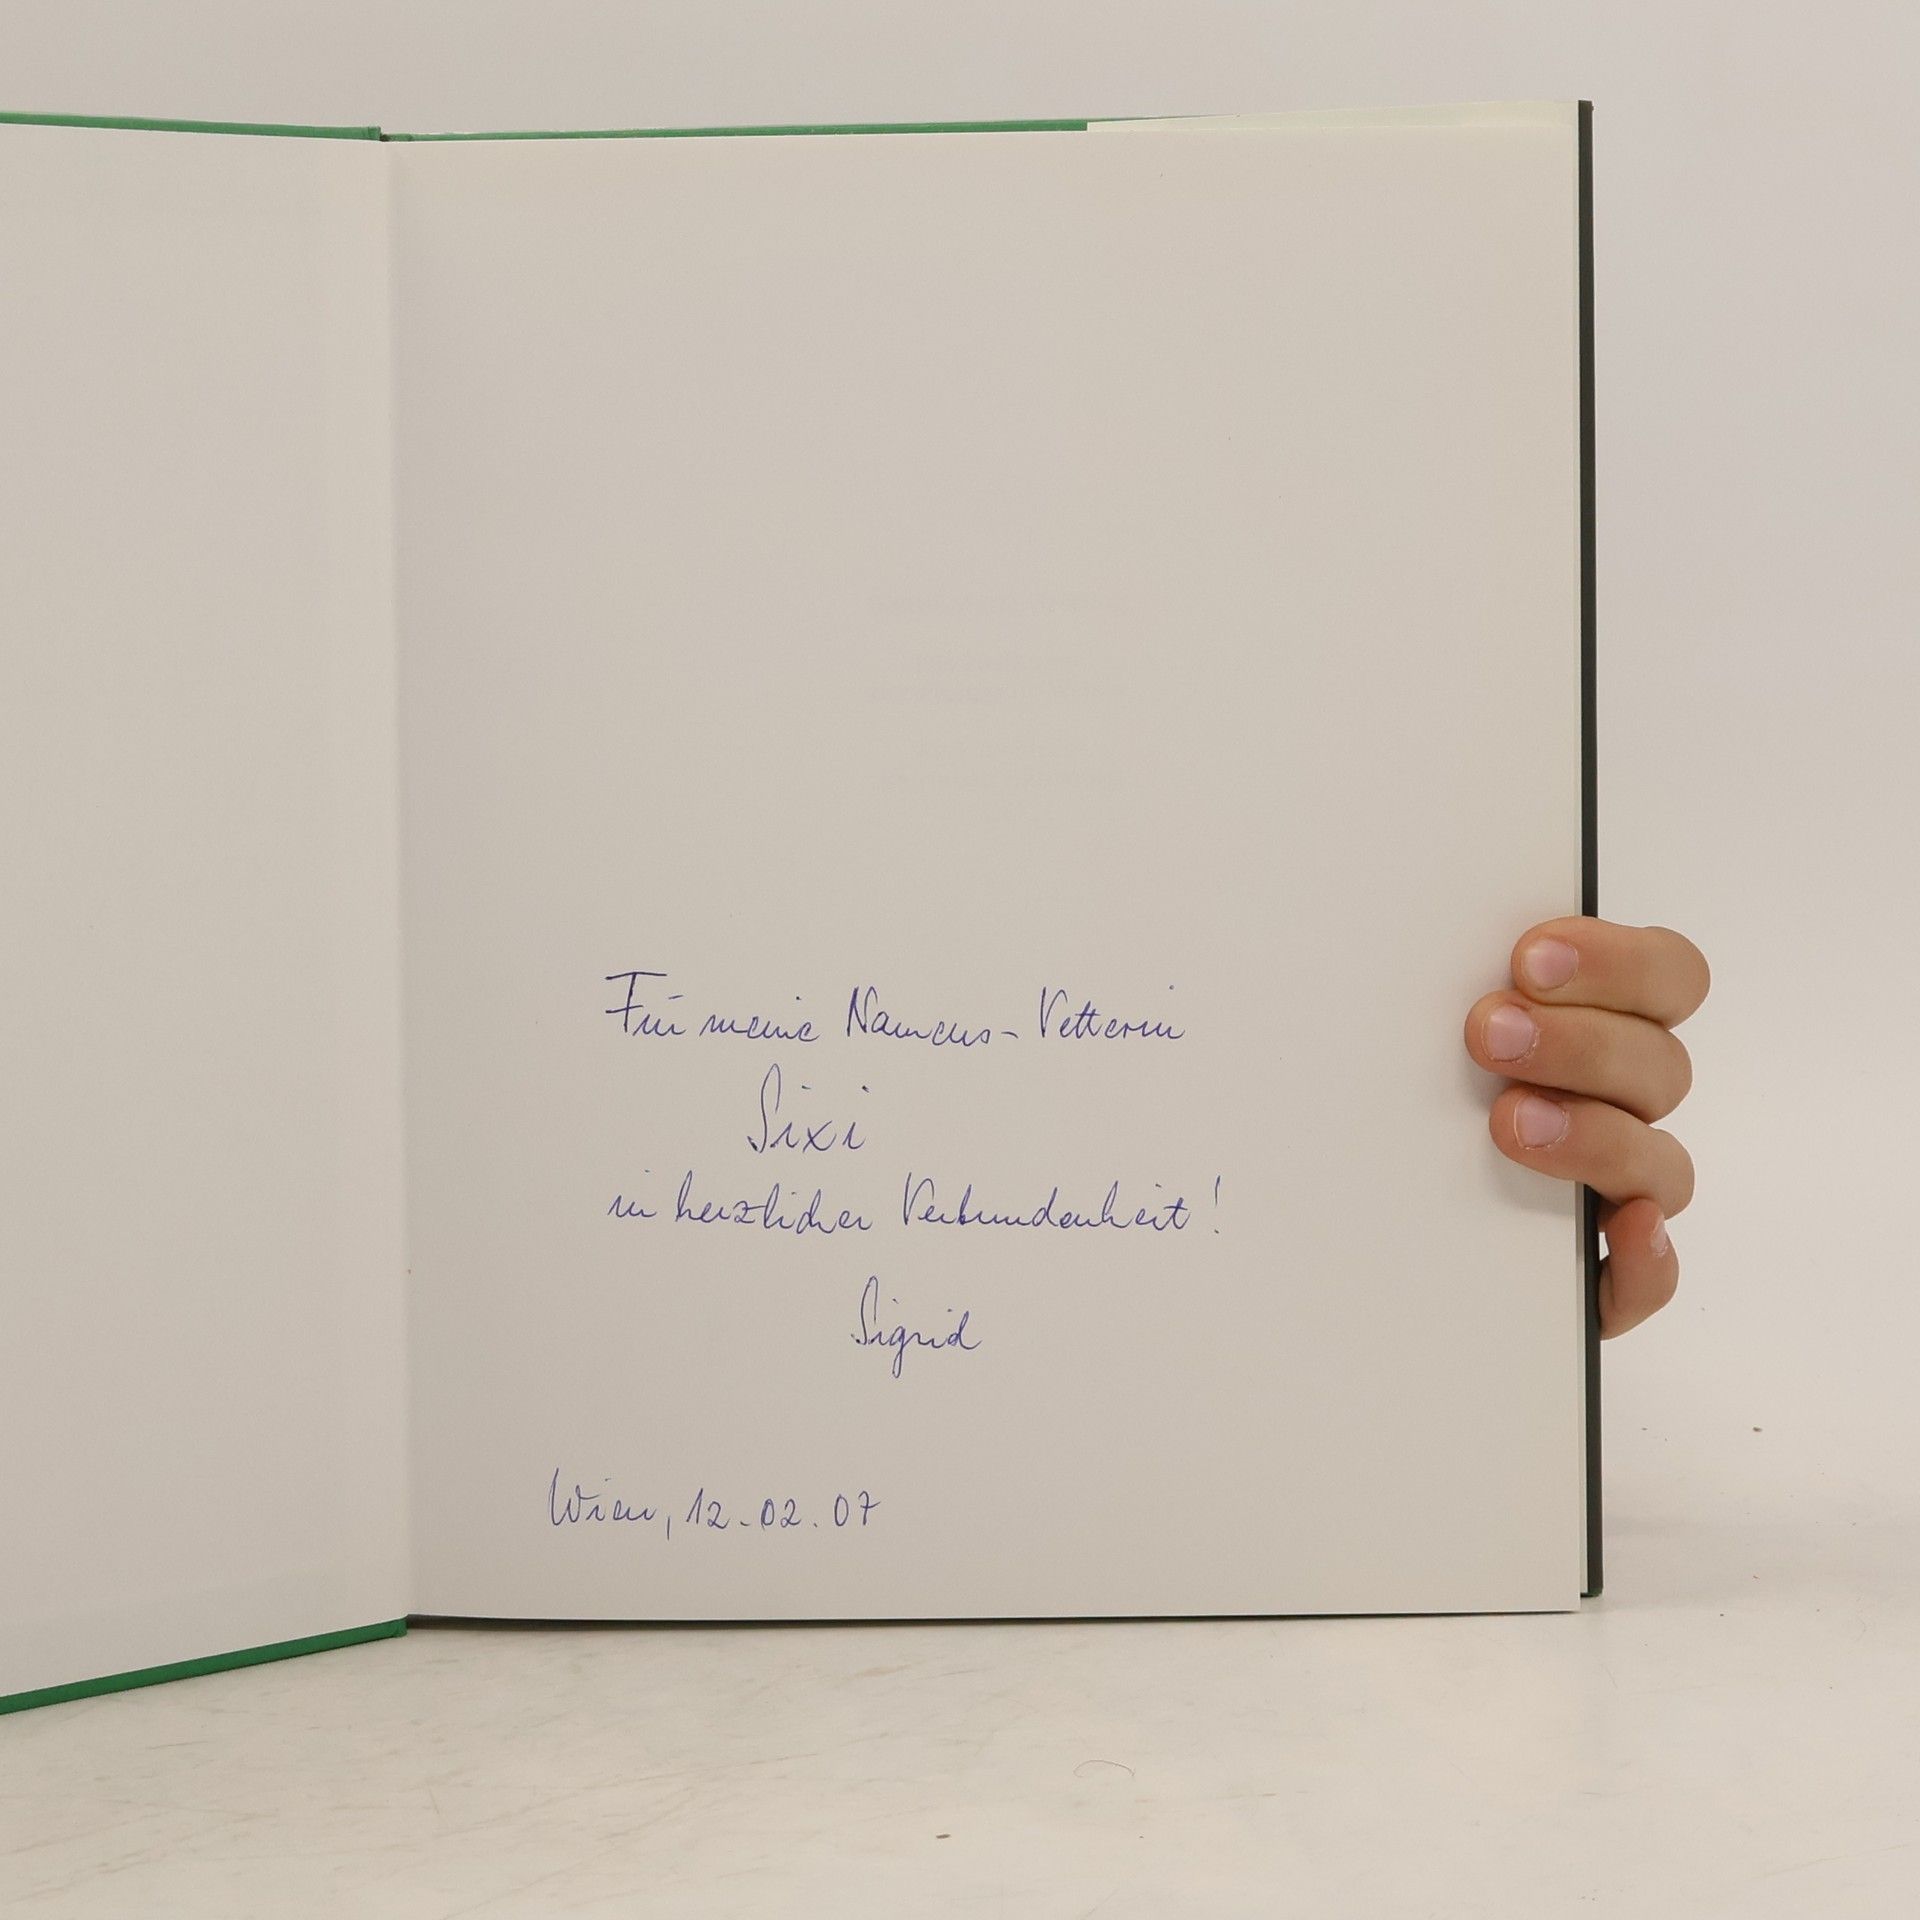 Für meine Namens-Vetterin
Sixi
in herzlicher Verbundenheit!
Sigrid
Wien, 12.02.07